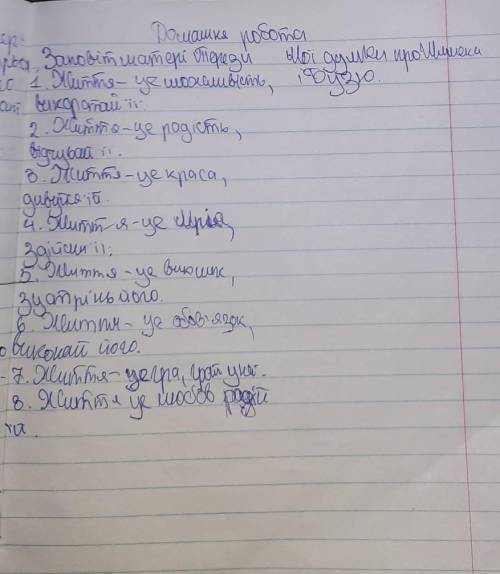 Домашня робота
Заповіт матері Терези Мої думки про Шпака
1. Життя - це можливість, і Фузю.
використай її.
2. Життя - це радість,
відчувай її.
3. Життя - це краса,
дивуйся їй.
4. Життя - це Мрія,
здійсни її.
5. Життя - це виклик,
зустрінь його.
6. Життя - це обов'язок,
виконай його.
7. Життя - це гра, грай у неї.
8. Життя це любов радій